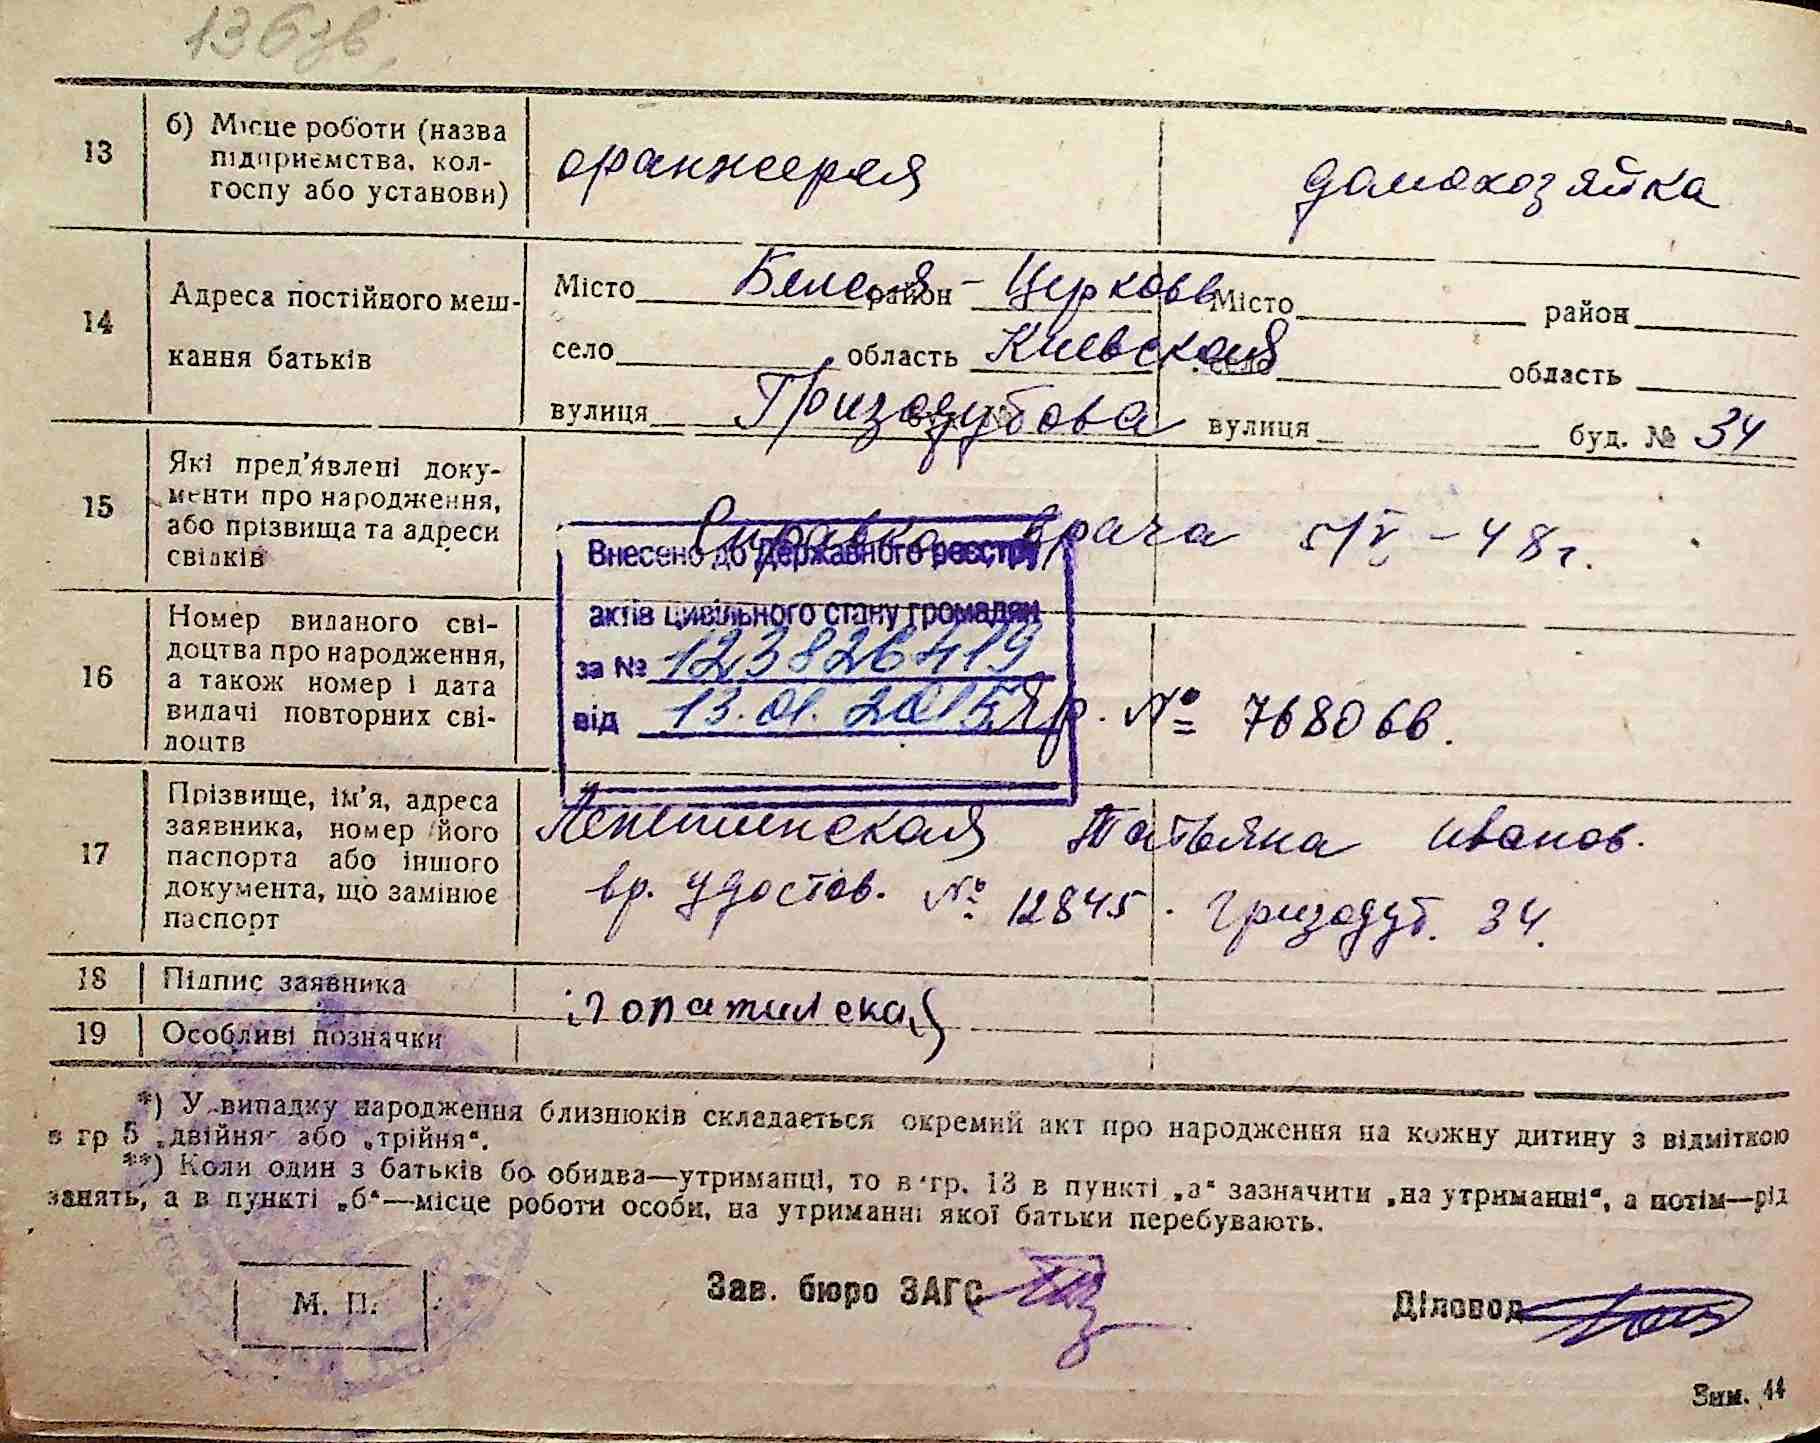 136зв.
13
б) Місце роботи (назва
підприємства, кол-
госпу або установи)
оранжерея
домохозяйка
14
Адреса постійного меш-
кання батьків
Місто Белая район - Церковь Місто район
село область Киевская село область
вулиця Гризодубова вулиця буд. № 34
15
Які пред'явлені доку-
менти про народження,
або прізвища та адреси
свідків
Справка врача 5/V - 48 г.
Внесено до Державного реєстру
актів цивільного стану громадян
за № 123826419
від 13.01.2015
16
Номер виданого сві-
доцтва про народження,
а також номер і дата
видачі повторних сві-
доцтв
№ 768066.
17
Прізвище, ім'я, адреса
заявника, номер його
паспорта або іншого
документа, що замінює
паспорт
Татьяна Иванов.
вр. удостов. № 12845. Гризодуб. 34.
18
Підпис заявника
19
Особливі позначки
*) У випадку народження близнюків складається окремий акт про народження на кожну дитину з відміткою
в гр 5 „двійня“ або „трійня“.
**) Коли один з батьків бо обидва—утриманці, то в гр. 13 в пункті „а“ зазначити „на утриманні“, а потім—рід
занять, а в пункті „б“—місце роботи особи, на утриманні якої батьки перебувають.
М. П.
Зав. бюро ЗАГС
Діловод
Зим. 44